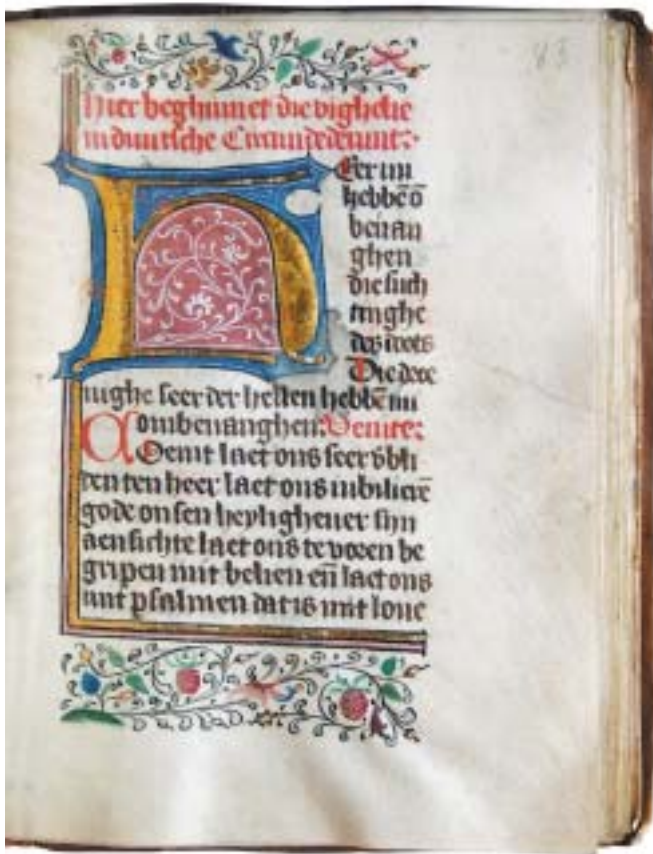 83
Hier beghinnet die vighelie
in duutsche Circumdederunt:
Eer mi
hebbē o
beuan
ghen
die such
tinghe
des doots
Die droe
nighe seer der hellen hebbē mi
ombeuanghen: Venite:
Coemt laet ons seer vbli
den ten heer laet ons iubilierē
gode onsen heyligheuer sijn
aensichte laet ons te voren be
gripen mit belien eñ laet ons
mit psalmen dat is mit loue